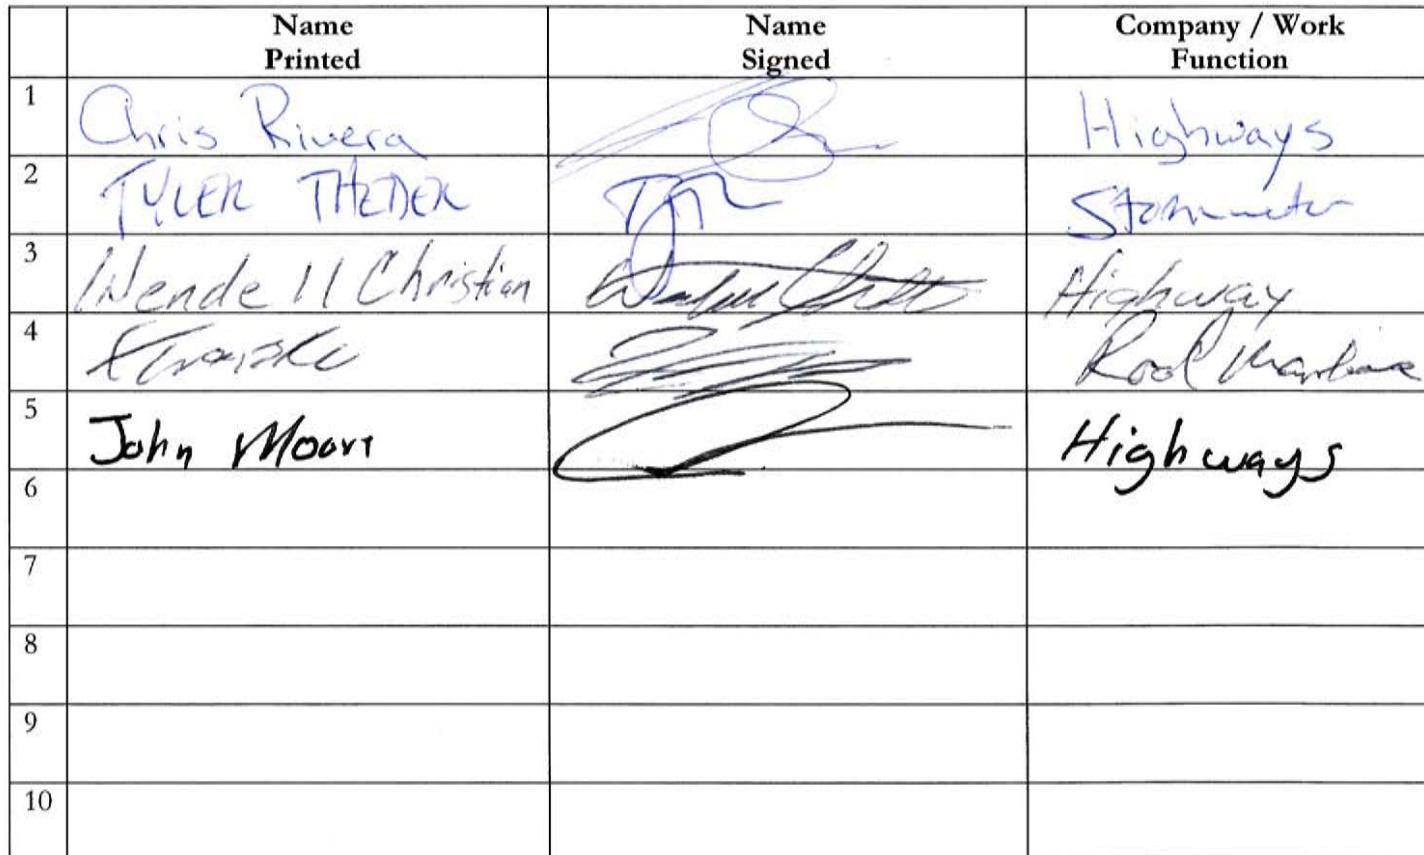 Name Printed Name Signed Company / Work Function
1 Chris Rivera Highways
2 TYLER THEDER Stormwater
3 Wendell Christian Highway
4
5 John Moore Highways
6
7
8
9
10